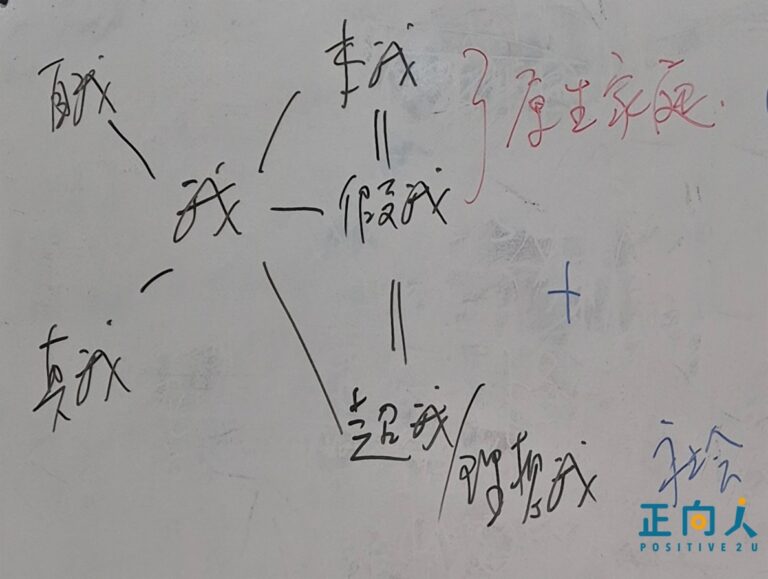 本我 原生家庭
自我
我 假我
+
真我
超我/理想我 社会
正向人
POSITIVE2U